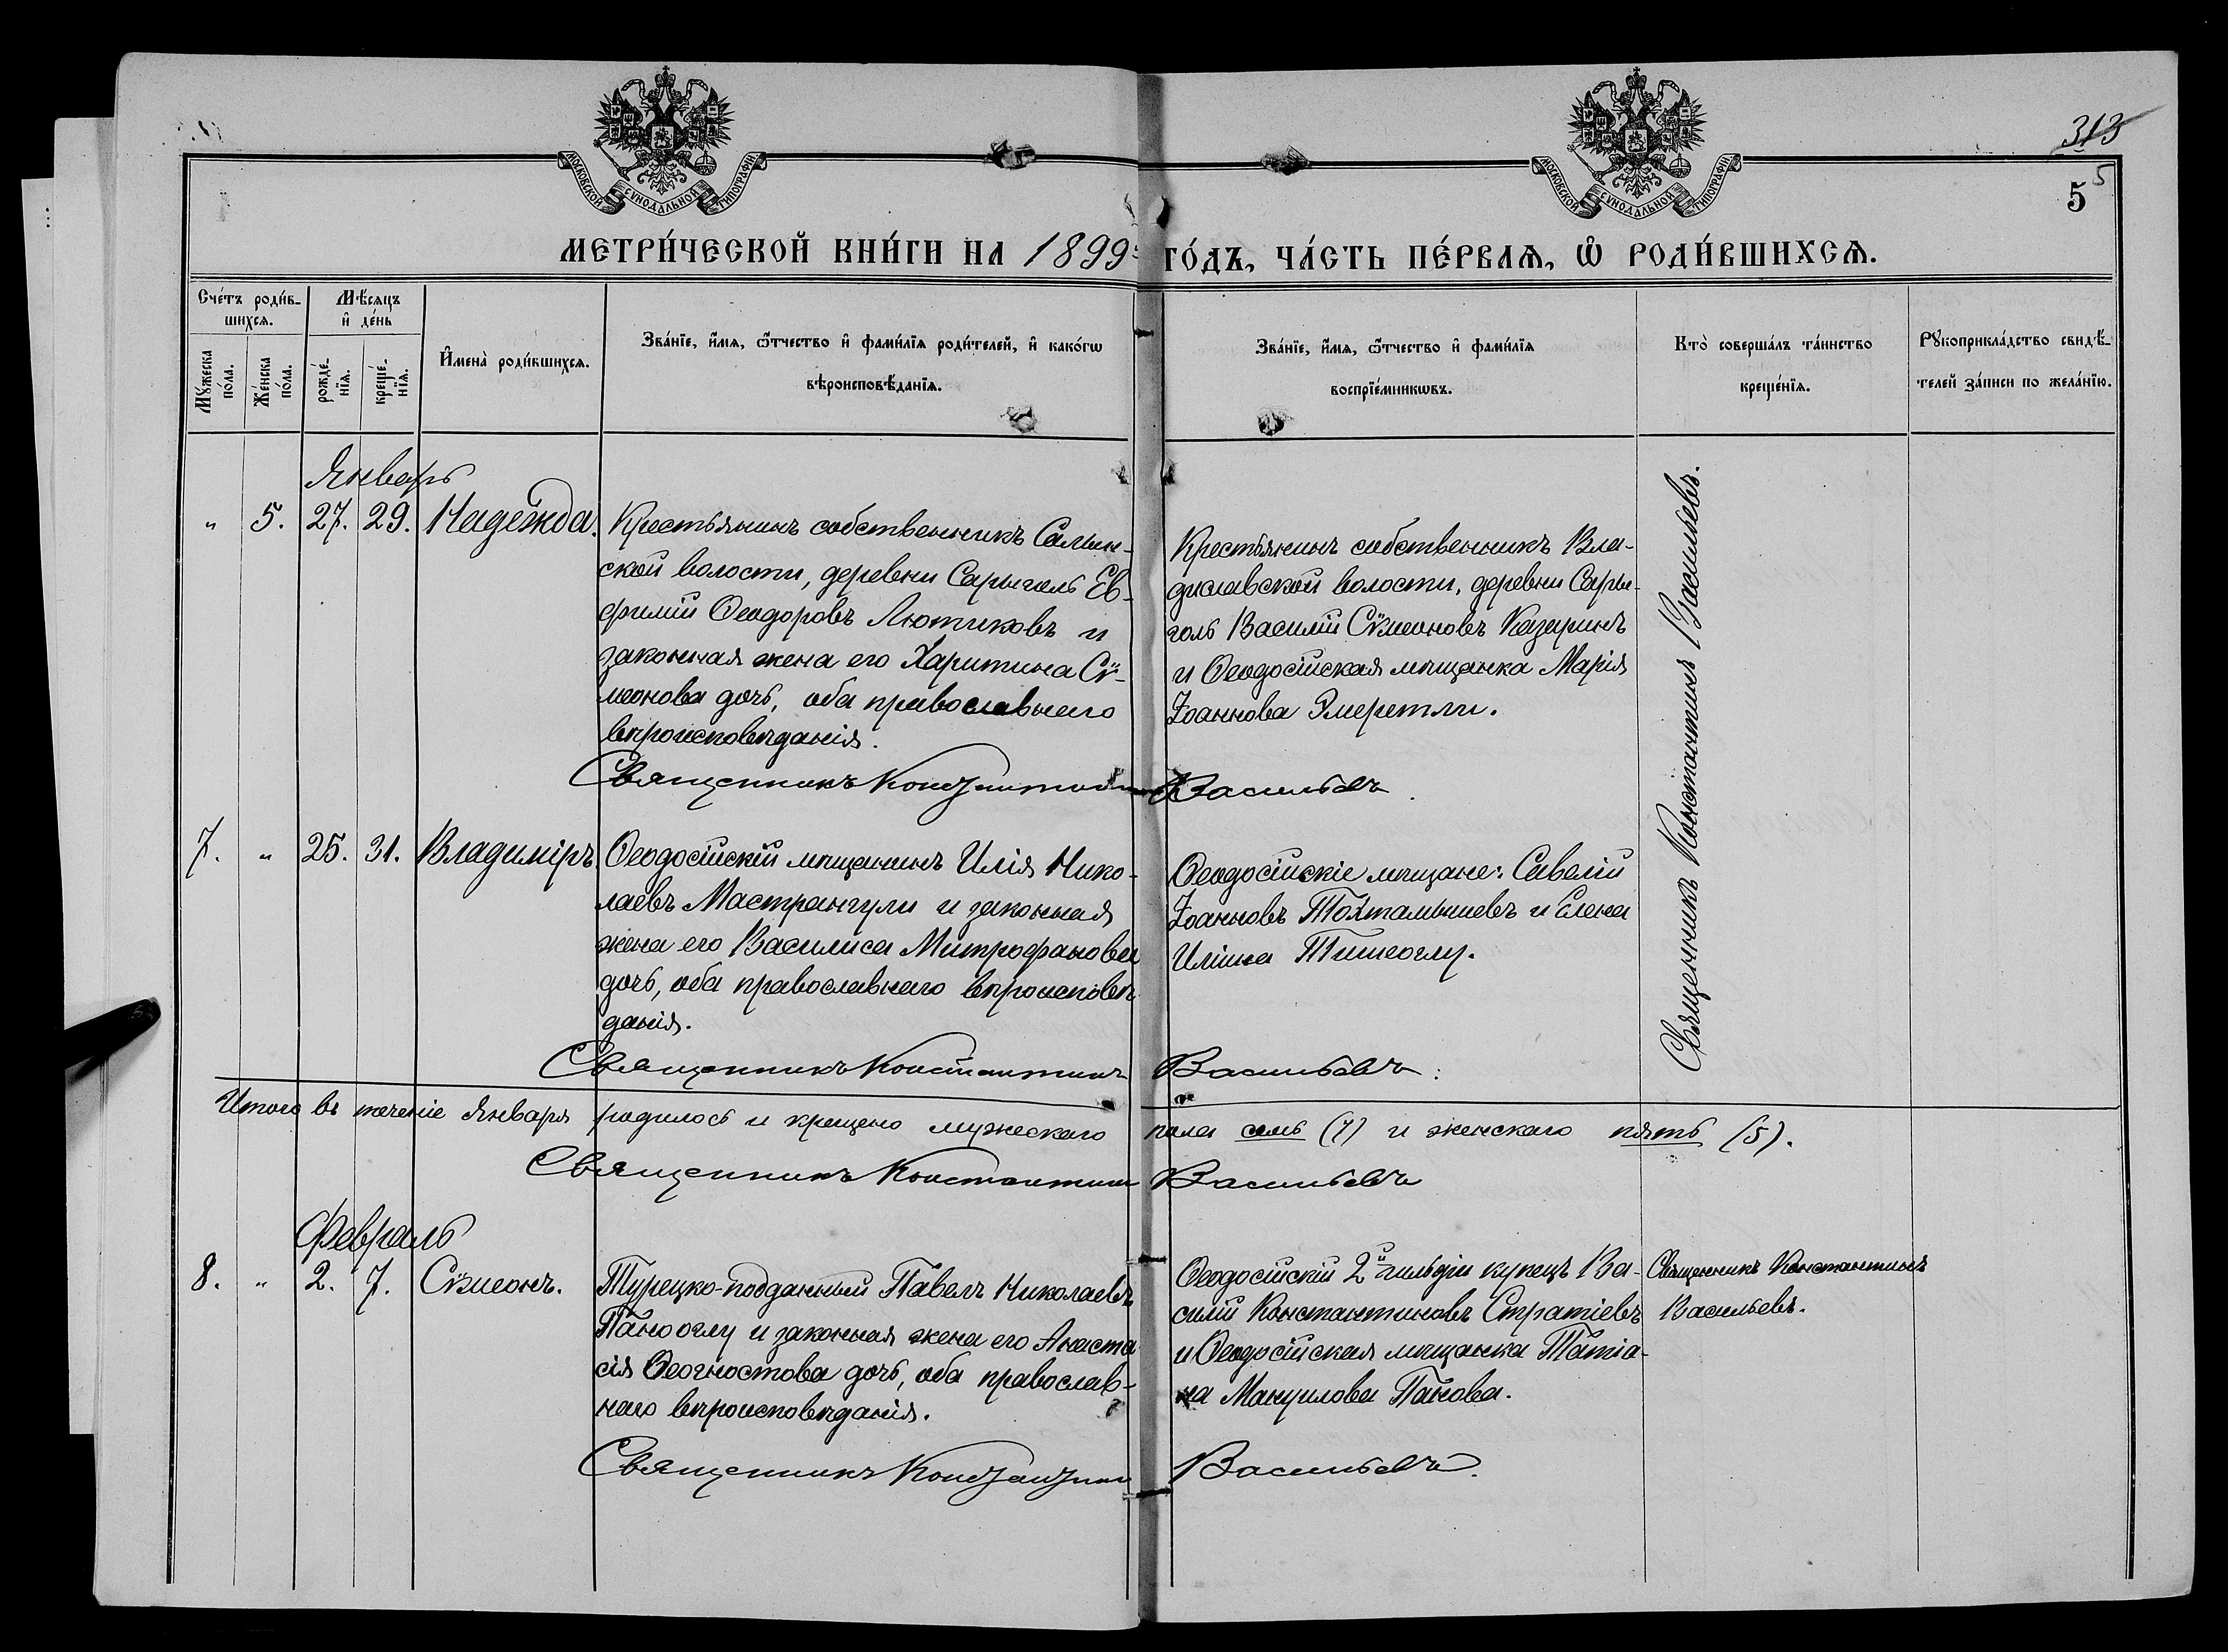 МОСКОВСКОЙ СѴНОДАЛЬНОЙ ТИПОГРАФІИ
МОСКОВСКОЙ СѴНОДАЛЬНОЙ ТИПОГРАФІИ
313
5
5
МЕТРИ́ЧЕСКОЙ КНИ́ГИ НА 1899 ГО́ДЪ, ЧА́СТЬ ПЕ́РВАѦ, Ѡ РОДИ́ВШИХСѦ.
Сче́тъ роди́в-
шихсѧ.
Мѣ́сѧцъ
и де́нь
Мꙋ́жеска
по́ла.
Же́нска
по́ла.
рожде́-
нїѧ.
креще́-
нїѧ.
Имена̀ роди́вшихсѧ.
Зва́нїе, и́мѧ, ѻ́тчество и фами́лїѧ роди́телей, и како́гѡ
вѣроисповѣ́данїѧ.
Зва́нїе, и́мѧ, ѻ́тчество и фами́лїѧ
воспрїе́мникѡвъ.
Кто̀ соверша́лъ та́инство
креще́нїѧ.
Рꙋкоприкла́дство свидѣ́-
телей за́писи по жела́нїю.
Январь
" 5. 27. 29. Надежда.
Крестьянинъ собственникъ Салын-
ской волости, деревни Сарыголь Ев-
фимій Ѳеодоровъ Лютиковъ и
законная жена его Харитина Сѵ-
меонова дочь, оба православнаго
вѣроисповѣданія.
Крестьянинъ собственникъ Вла-
диславской волости, деревни Сары-
голь Василій Сѵмеоновъ Казаринъ
и Ѳеодосійская мѣщанка Марія
Іоаннова Эмеретли.
Священникъ Константинъ Васильевъ.
Священникъ Константинъ Васильевъ.
7. " 25. 31. Владиміръ.
Ѳеодосійскій мѣщанинъ Илія Нико-
лаевъ Мастрангули и законная
жена его Василиса Митрофанова
дочь, оба православнаго вѣроисповѣ-
данія.
Ѳеодосійскіе мѣщане: Савелій
Іоанновъ Тохтамышевъ и Елена
Иліина Тишеоглу.
Священникъ Константинъ Васильевъ.
Итого въ теченіе Января родилось и крещено мужескаго пола семь (7) и женскаго пять (5).
Священникъ Константинъ Васильевъ
Февраль
8. " 2. 7. Сѵмеонъ.
Турецко-подданный Павелъ Николаевъ
Панооглу и законная жена его Анаста
сія Ѳеогностова дочь, оба православ-
наго вѣроисповѣданія.
Ѳеодосійскій 2й гильдіи купецъ Ва-
силій Константиновъ Стратіевъ
и Ѳеодосійская мѣщанка Татіа-
на Мануилова Панова.
Священникъ Константинъ
Васильевъ.
Священникъ Константинъ Васильевъ.